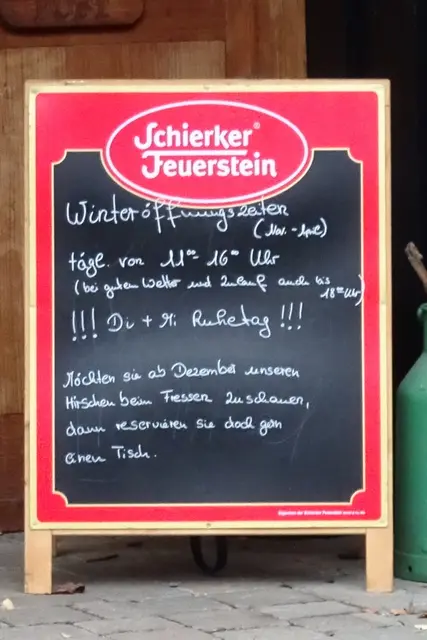 Schierker®
Feuerstein
Winteröffnungszeiten
(Nov. - April)
tägl. von 11⁰⁰ - 16⁰⁰ Uhr
(bei gutem Wetter und Zulauf auch bis
18⁰⁰ Uhr)
!!! Di + Mi Ruhetag !!!
Möchten sie ab Dezember unseren
Hirschen beim Fressen zuschauen,
dann reservieren sie doch gern
einen Tisch.